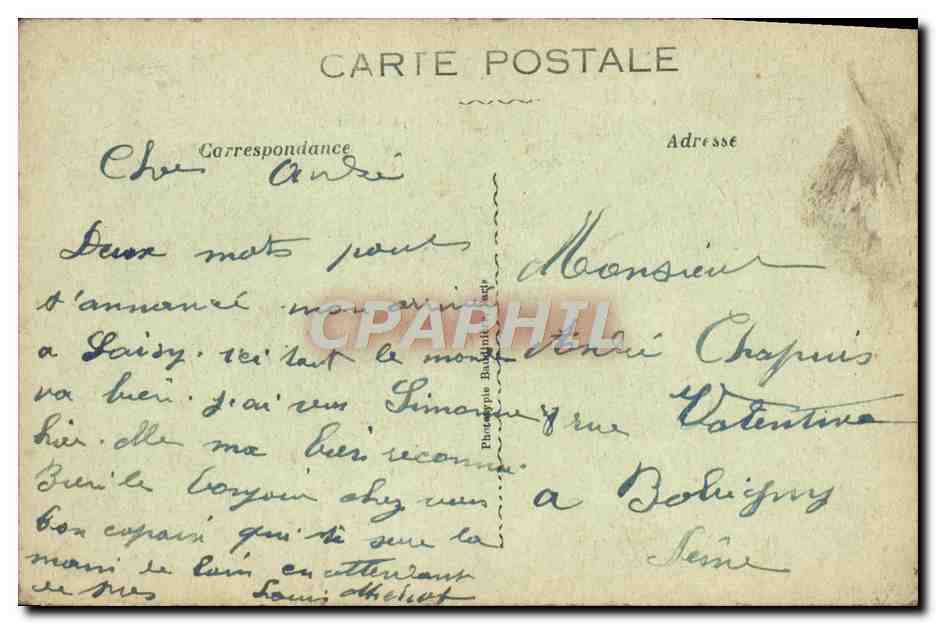 CARTE POSTALE
Correspondance
Adresse
Cher André
Deux mots pour
t'annoncé mon arrivé
a Soisy. ici tout le monde
va bien. j'ai vus Simonne
hier. elle ma bien reconnu
Bien le bonjour chez vous
ton copain qui te serre la
main de loin en attendant
de près Louis
Phototypie Baudinière, Paris
Monsieur
André Chapuis
rue Valentine
a Bobigny
Seine
CPAPHIL